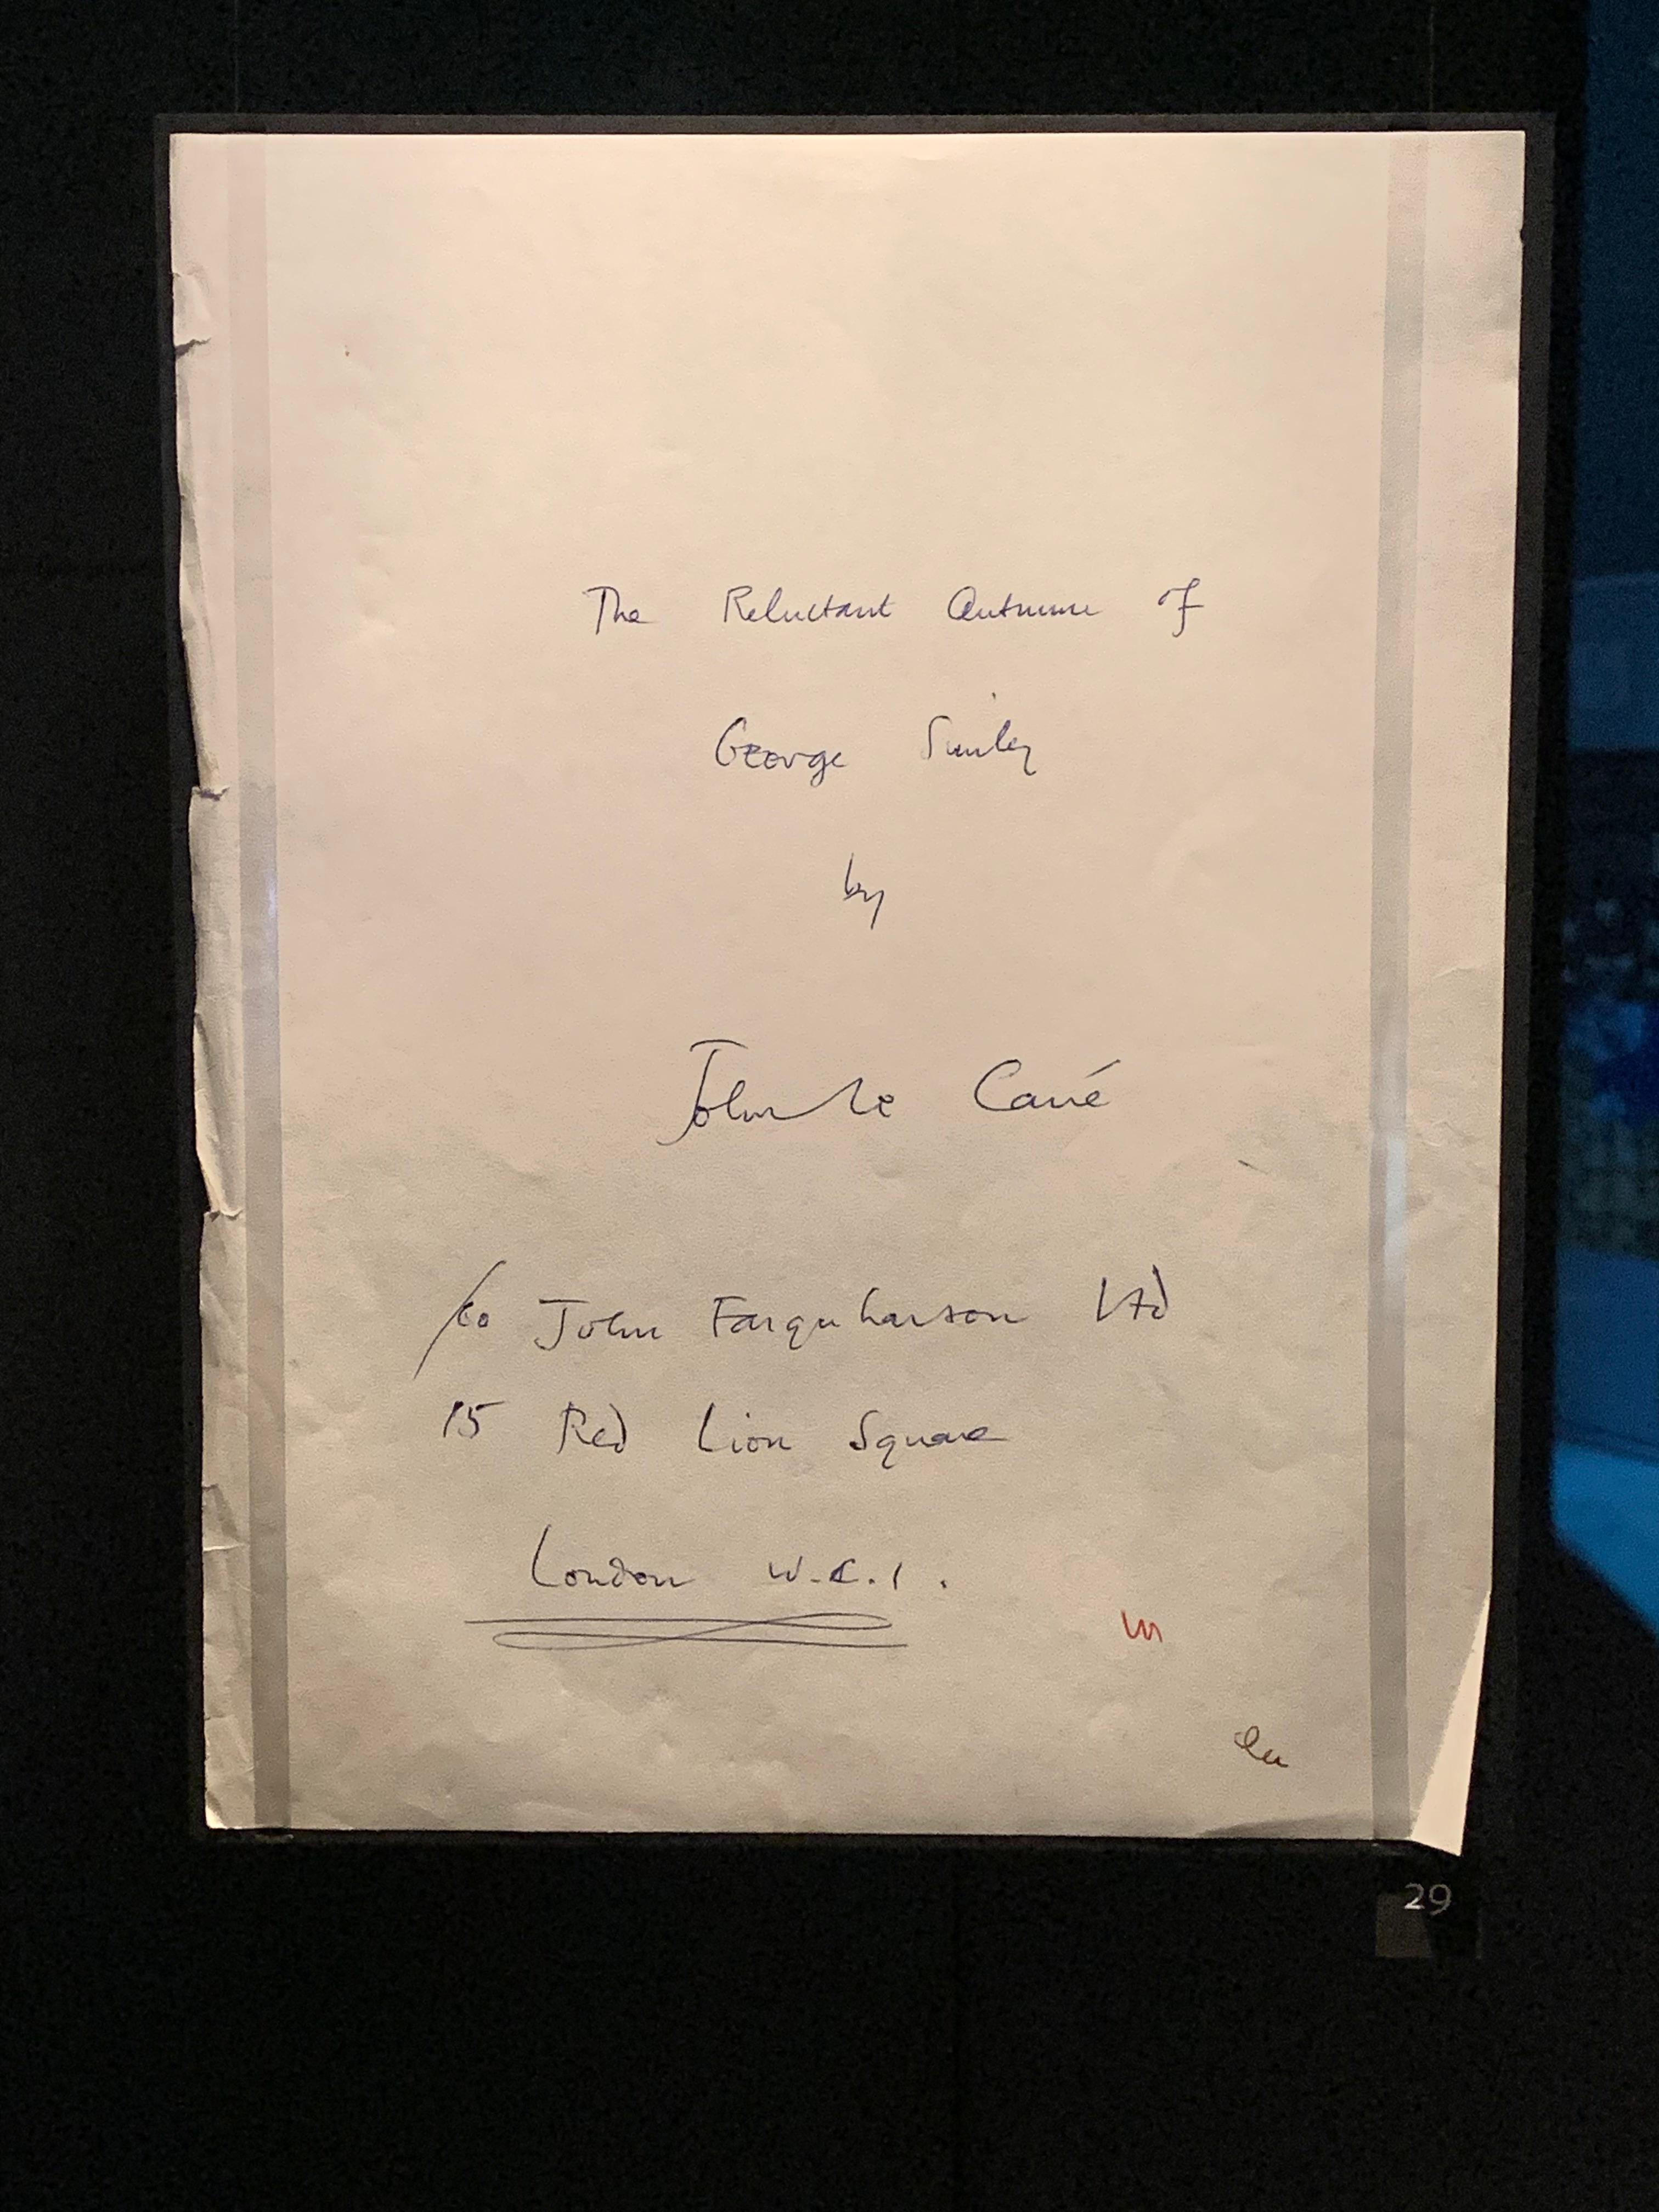 The Reluctant Autumn of
George Smiley
by
John le Carré
c/o John Farquharson Ltd
15 Red Lion Square
London W.C.1.
29